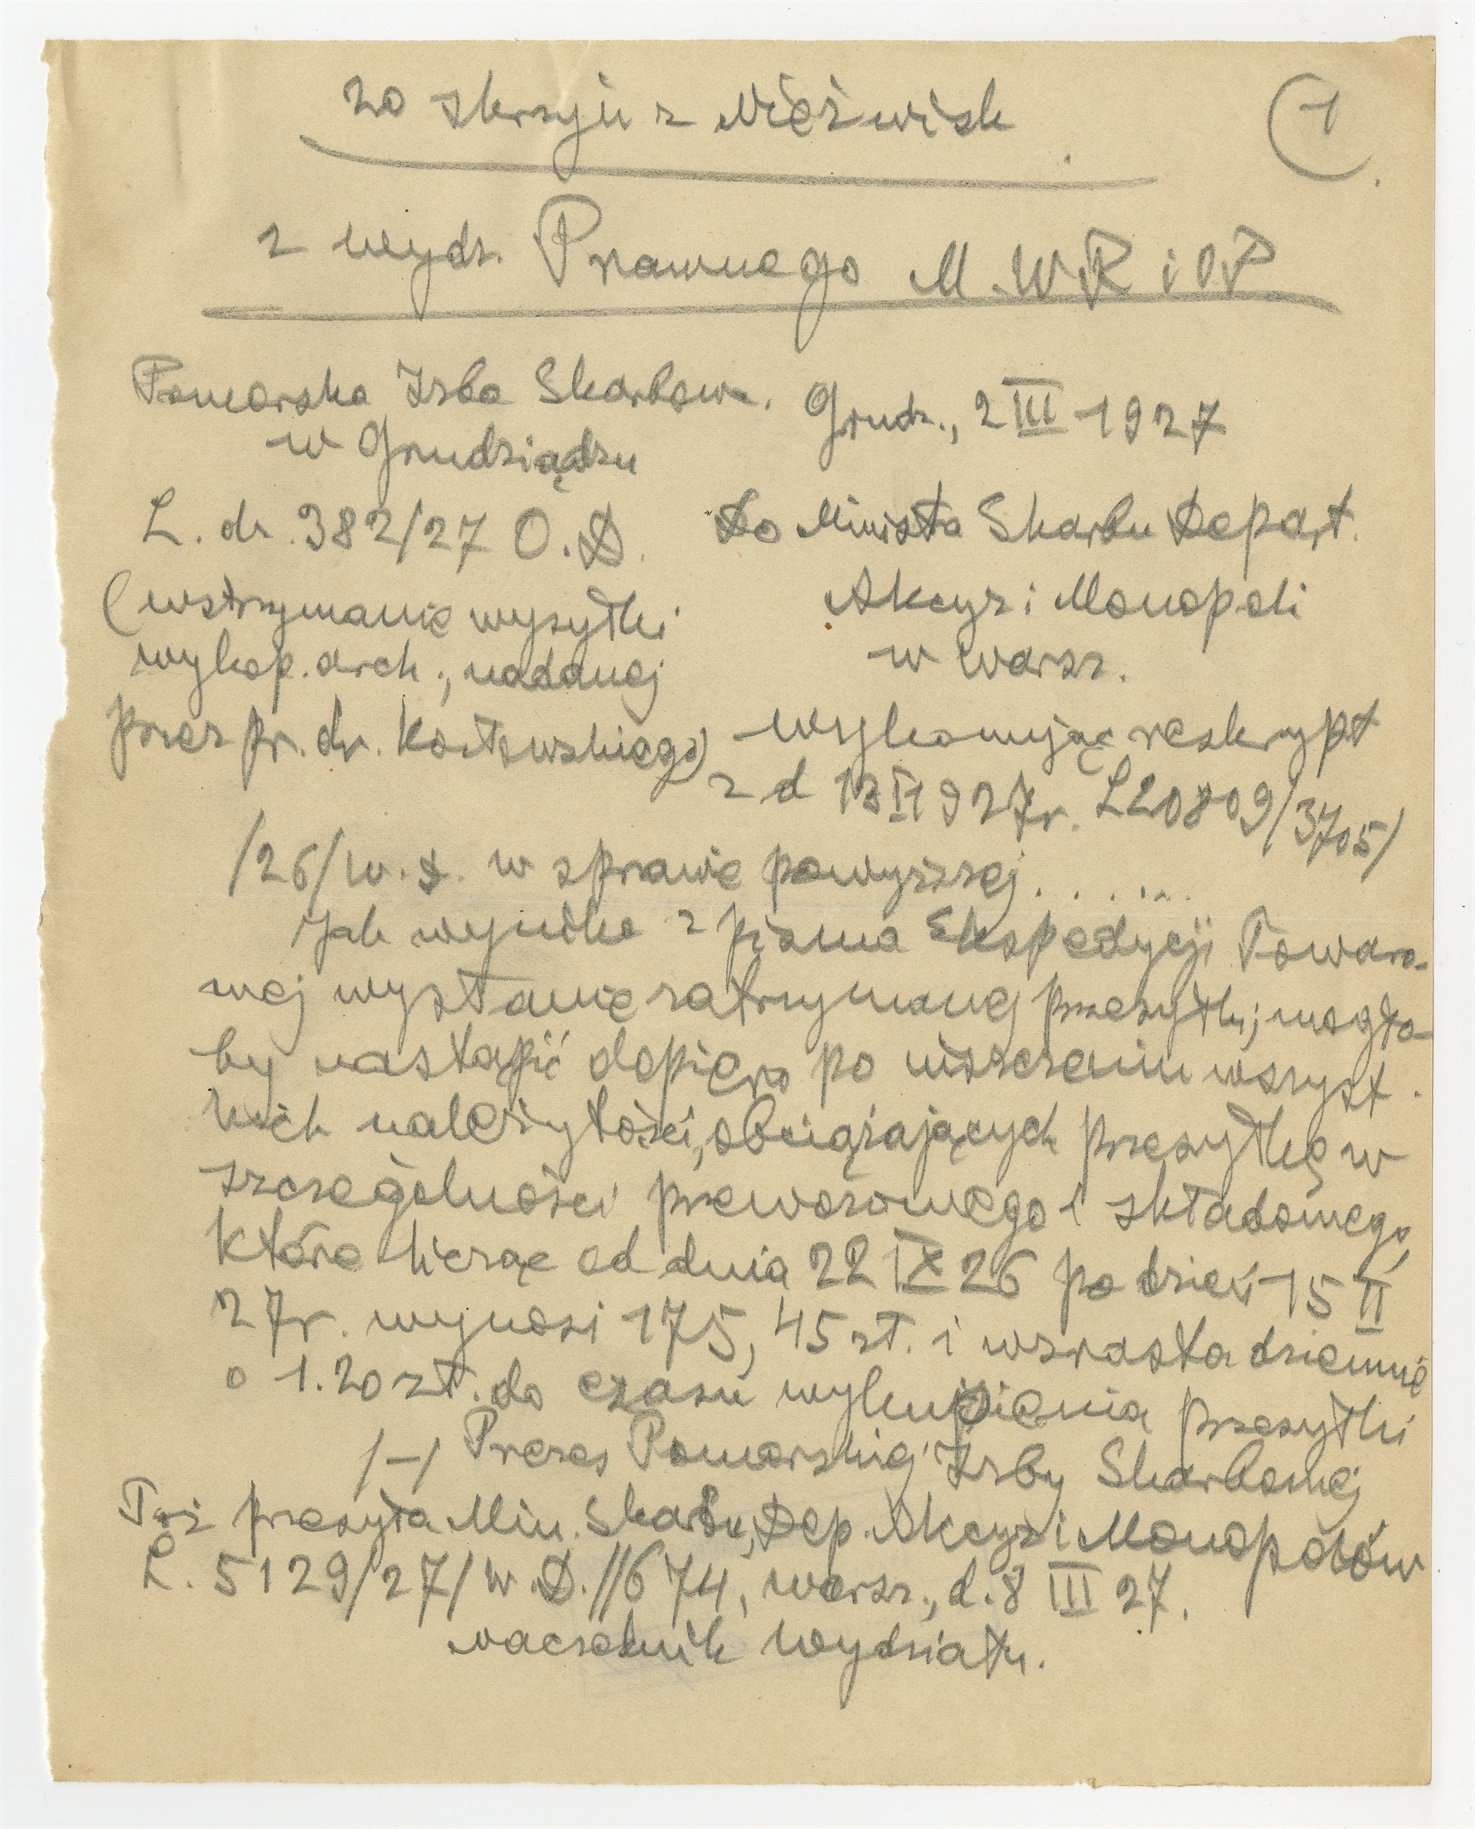 20 skrzyń z Nieźwisk
1
z wydz. Prawnego M. WR i OP
Pomorska Izba Skarbow.
w Grudziądzu
Grudz., 2 III 1927
L. dz. 382/27 O. D.
Do Minista Skarbu Depart.
Akcyz i Monopoli
w Warsz.
(wstrzymanie wysyłki
wykop. arch., nadanej
przez pr. dr. Kozłowskiego)
Wykonując reskrypt
z d 13 II 1927r. L 20809/3705/
/26/W.D. w sprawie powyższej . . . . . .
Jak wynika z pisma Ekspedycji Towaro-
wej wysłanie zatrzymanej przesyłki mogło-
by nastąpić dopiero po uiszczeniu wszyst-
kich należytości, obciążających przesyłkę w
szczególności przewozowego i składowego,
które licząc od dnia 22 IX 26 po dzień 15 II
27r. wynosi 175,45 zł. i wzrasta dziennie
o 1.20 zł. do czasu wykupienia przesyłki
/-/ Prezes Pomorskiej Izby Skarbowej
Toż przesyła Min. Skarbu, Dep. Akcyz i Monopolów
L. 5129/27/W.D.//674, Warsz., d. 8 III 27.
naczelnik Wydziału.